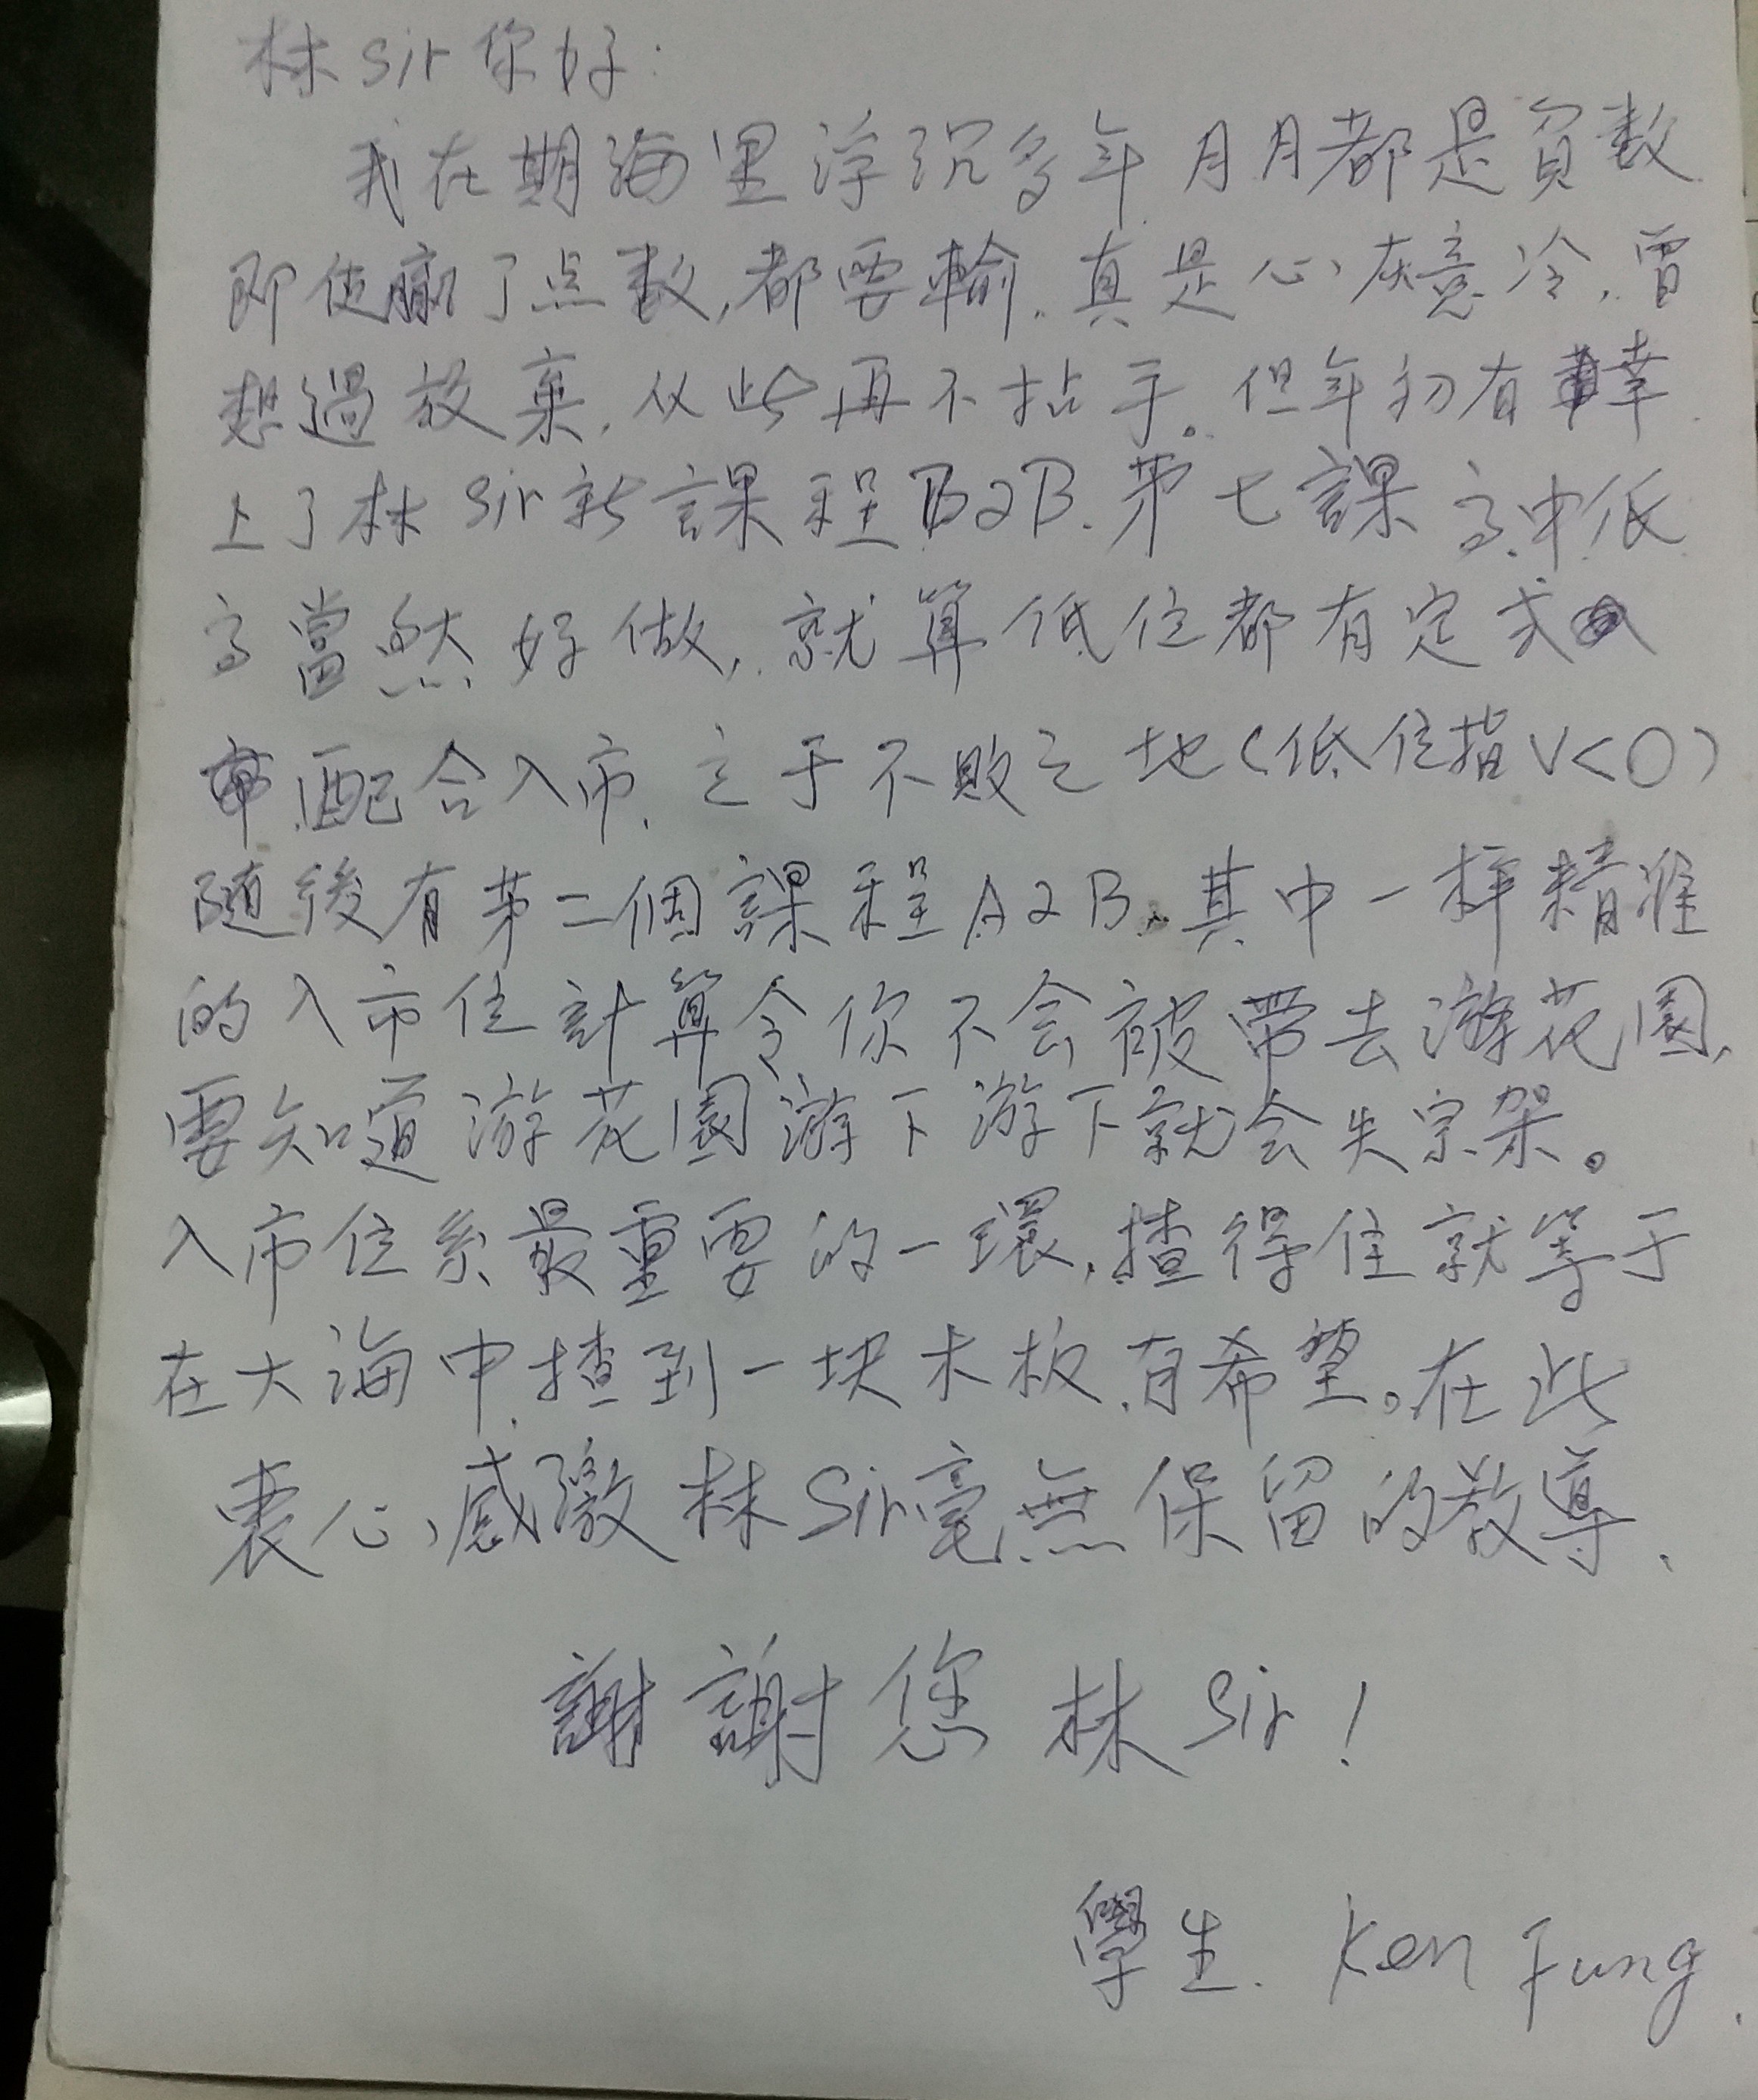 林sir你好:
我在期海里浮沉多年 月月都是負数
即使贏了点数,都要輸.真是心灰意冷.曾
想過放棄.从此再不拈手。但年初有幸
上了林sir新課程B2B.第七課高中低
高當然好做,就算低位都有定式
配合入市.立于不敗之地(低位指V<0)
随後有第二個課程A2B.其中一样精准
的入市位計算令你不会被帶去游花園.
要知道游花園游下游下就会失宗架。
入市位系最重要的一環,揸得住就等于
在大海中揸到一块木板.有希望。在此
衷心感激林Sir毫無保留的教導.
謝謝您 林sir!
學生. Ken Fung.